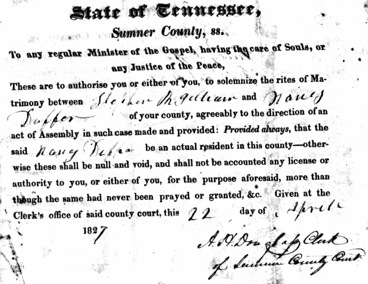 State of Tennessee,
Sumner County, ss.
To any regular Minister of the Gospel, having the care of Souls, or
any Justice of the Peace,
These are to authorise you or either of you, to solemnize the rites of Ma-
trimony between and Nancy
of your county, agreeably to the direction of an
act of Assembly in such case made and provided: Provided always, that the
said Nancy be an actual resident in this county—other-
wise these shall be null and void, and shall not be accounted any license or
authority to you, or either of you, for the purpose aforesaid, more than
though the same had never been prayed or granted, &c. Given at the
Clerk's office of said county court, this 22 day of April
1827
A. H. Douglass Clerk
of Sumner County Court